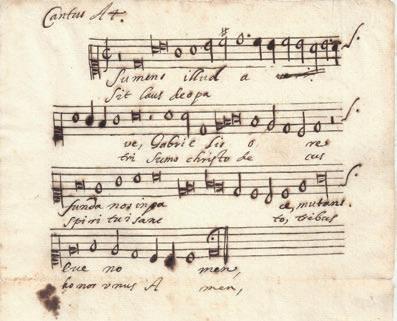 Cantus A4.
Sumens illud a
Sit laus deo pa
ve, Gabrielis o re
tri sumo christo de cus
funda nos in pa ce, mutans
spiritui sanc to, tribus
Eve no men,
honor vnus A men,